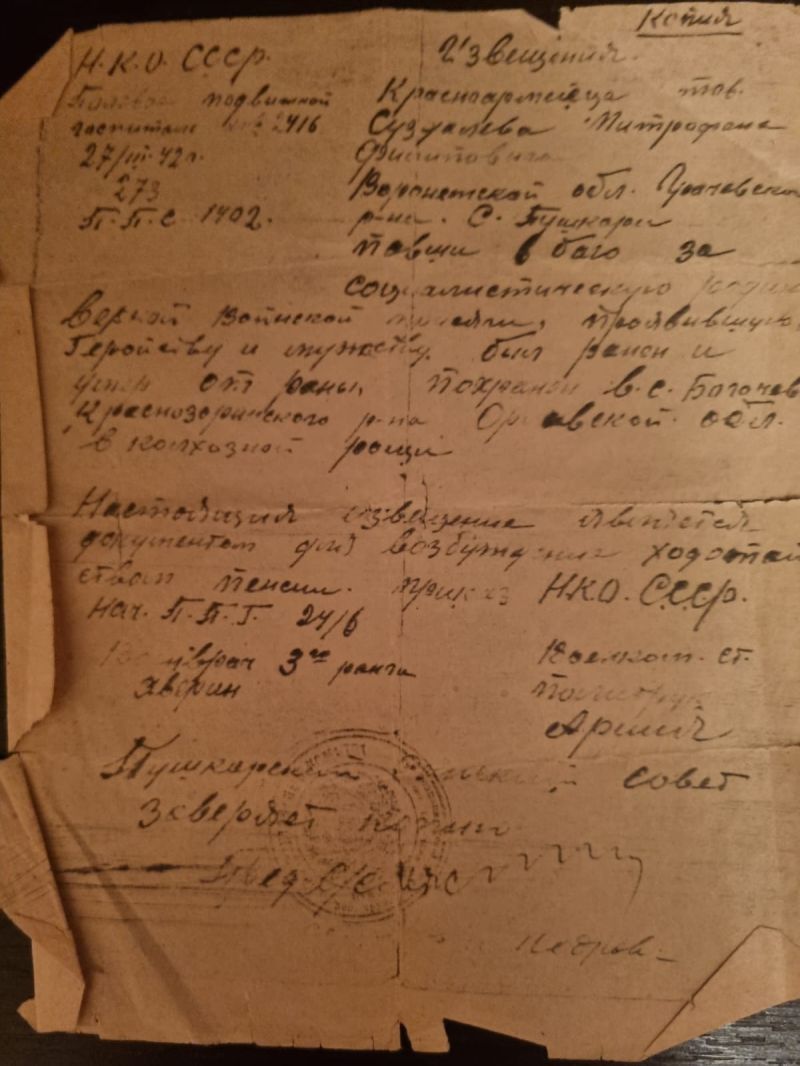 Копия
Н.К.О. СССР.
Полевой подвижной
госпиталь № 2416
27/III-42 г.
273
П.П.С. 1402.
Извещения
Красноармейца тов.
Суздалева Митрофана
Филиповича
Воронежской обл.
р-на. С. Пушкари
Павши в баю за
социалистическую родин
верной Воинской присяги, проявившую
Геройству и мужеству был ранен и
умер от раны, похранен в.с. Богачев
Краснозоринского р-на Орловской обл.
в колхозной рощи
Настоящия извещение является
документом для возбуждение ходотай
ствам пенсии. приказ НКО. СССР.
Нач. П.П.Г. 2416
Военврач 3го ранга
Аверин
Военком. ст.
политрук
Пушкарский сельский совет
Зсверяет копию
Пред. С/с